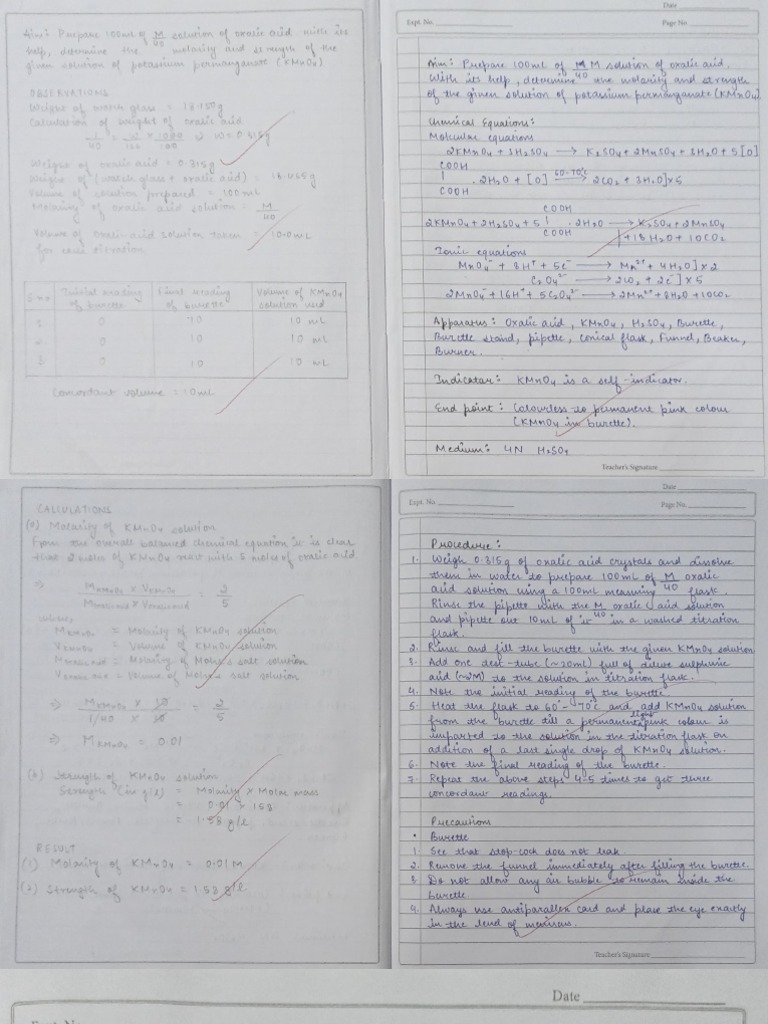 Aim: Prepare 100ml of M/40 solution of oxalic acid. With its
help, determine the molarity and strength of the
given solution of potassium permanganate (KMnO4)
OBSERVATIONS
Weight of watch glass = 18.150g
Calculation of weight of oxalic acid
1/40 = w/126 × 1000/100 ⇒ W = 0.315g
Weight of oxalic acid = 0.315g
Weight of (watch glass + oxalic acid) = 18.465g
Volume of solution prepared = 100mL
Molarity of oxalic acid solution = M/40
Volume of oxalic acid solution taken = 10.0mL
for each titration
S.no Initial reading of burette Final reading of burette Volume of KMnO4 solution used
1 0 10 10 mL
2 0 10 10 mL
3 0 10 10 mL
Concordant volume = 10mL
Date
Expt. No.
Page No.
Aim: Prepare 100mL of M/40 M solution of oxalic acid.
With its help, determine the molarity and strength
of the given solution of potassium permanganate (KMnO4).
Chemical Equations:
Molecular equations
2KMnO4 + 3H2SO4 → K2SO4 + 2MnSO4 + 3H2O + 5[O]
COOH
| .2H2O + [O] 60-70°C → 2CO2 + 3H2O] x 5
COOH
COOH
2KMnO4 + 3H2SO4 + 5 | .2H2O → K2SO4 + 2MnSO4
COOH + 18H2O + 10CO2
Ionic equations
MnO4- + 8H+ + 5e- → Mn2+ + 4H2O] x 2
C2O4 2- → 2CO2 + 2e-] x 5
2MnO4- + 16H+ + 5C2O4 2- → 2Mn2+ + 8H2O + 10CO2
Apparatus: Oxalic acid, KMnO4, H2SO4, Burette,
Burette stand, pipette, conical flask, Funnel, Beaker,
Burner.
Indicator: KMnO4 is a self-indicator.
End point: Colourless to permanent pink colour
(KMnO4 in burette).
Medium: 4N H2SO4
Teacher's Signature
CALCULATIONS
(a) Molarity of KMnO4 solution
From the overall balanced chemical equation it is clear
that 2 moles of KMnO4 react with 5 moles of oxalic acid
⇒ MKMnO4 x VKMnO4 / Moxalic acid x Voxalic acid = 2/5
where,
MKMnO4 = Molarity of KMnO4 solution
VKMnO4 = Volume of KMnO4 solution
Moxalic acid = Molarity of Mohr's salt solution
Voxalic acid = Volume of Mohr's salt solution
⇒ MKMnO4 x 10 / 1/40 x 10 = 2/5
⇒ MKMnO4 = 0.01
(b) Strength of KMnO4 solution
Strength (in g/l) = Molarity x Molar mass
= 0.01 x 158
= 1.58 g/l
RESULT
(1) Molarity of KMnO4 = 0.01M
(2) Strength of KMnO4 = 1.58 g/l
Date
Expt. No.
Page No.
Procedure:
1. Weigh 0.315g of oxalic acid crystals and dissolve
them in water to prepare 100mL of M/40 oxalic
acid solution using a 100ml measuring flask.
Rinse the pipette with the M/40 oxalic acid solution
and pipette out 10ml of it in a washed titration
flask.
2. Rinse and fill the burette with the given KMnO4 solution
3. Add one test-tube (~20ml) full of dilute sulphuric
acid (~2M) to the solution in titration flask.
4. Note the initial reading of the burette
5. Heat the flask to 60°-70°C and add KMnO4 solution
from the burette till a permanent light pink colour is
imparted to the solution in the titration flask on
addition of a last single drop of KMnO4 solution.
6. Note the final reading of the burette.
7. Repeat the above steps 4-5 times to get three
concordant readings.
Precautions
• Burette
1. See that stop-cock does not leak.
2. Remove the funnel immediately after filling the burette.
3. Do not allow any air bubble to remain inside the
burette
4. Always use antiparallex card and place the eye exactly
in the level of meniscus.
Teacher's Signature
Date
Expt. No.